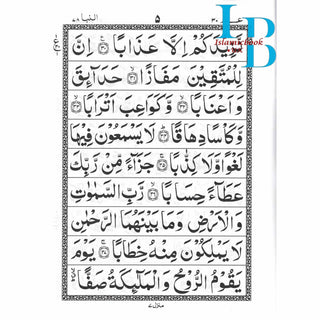 النبا ٧٨
٥
عم ٣٠
Islamic Book
LB
نَّزِيْدَكُمْ اِلَّا عَذَابًا ﴿٣٠﴾ اِنَّ
لِلْمُتَّقِيْنَ مَفَازًا ﴿٣١﴾ حَدَآئِقَ
وَاَعْنَابًا ﴿٣٢﴾ وَّكَوَاعِبَ اَتْرَابًا ﴿٣٣﴾
وَّكَاْسًا دِهَاقًا ﴿٣٤﴾ لَا يَسْمَعُوْنَ فِيْهَا
لَغْوًا وَّلَا كِذّٰبًا ﴿٣٥﴾ جَزَآءً مِّنْ رَّبِّكَ
عَطَآءً حِسَابًا ﴿٣٦﴾ رَّبِّ السَّمٰوٰتِ
وَالْاَرْضِ وَمَا بَيْنَهُمَا الرَّحْمٰنِ
لَا يَمْلِكُوْنَ مِنْهُ خِطَابًا ﴿٣٧﴾ يَوْمَ
يَقُوْمُ الرُّوْحُ وَالْمَلٰٓئِكَةُ صَفًّا
منزل ٧